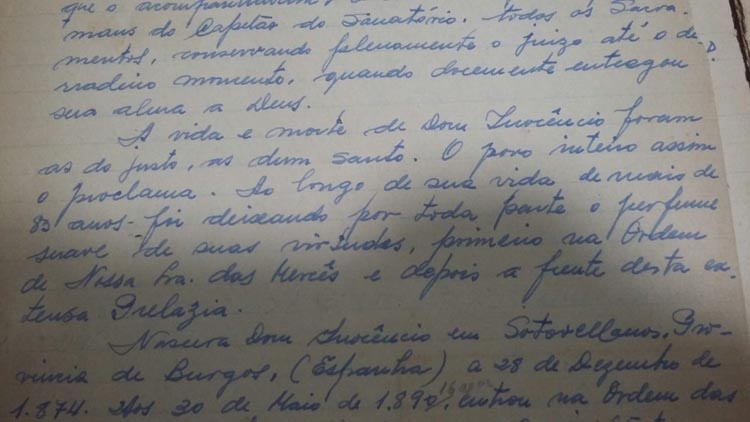 que o acompanhavam,
maus do Capelão do Sanatório, todos os Sacra-
mentos, conservando plenamente o juizo até o de-
rradeiro momento, quando docemente entregou
sua alma a Deus.
A vida e morte de Dom Inocêncio foram
as do justo, as dum santo. O povo inteiro assim
o proclama. Ao longo de sua vida de mais de
83 anos foi deixando por toda parte o perfume
suave de suas virtudes, primeiro na Ordem
de Nossa Sra. das Mercês e depois a frente desta ex-
tensa Prelazia.
Nascera Dom Inocêncio em Sotovellanos, Pro-
vincia de Burgos, (Espanha) a 28 de Dezembro de
1.874. Aos 30 de Maio de 1.890, entrou na Ordem das